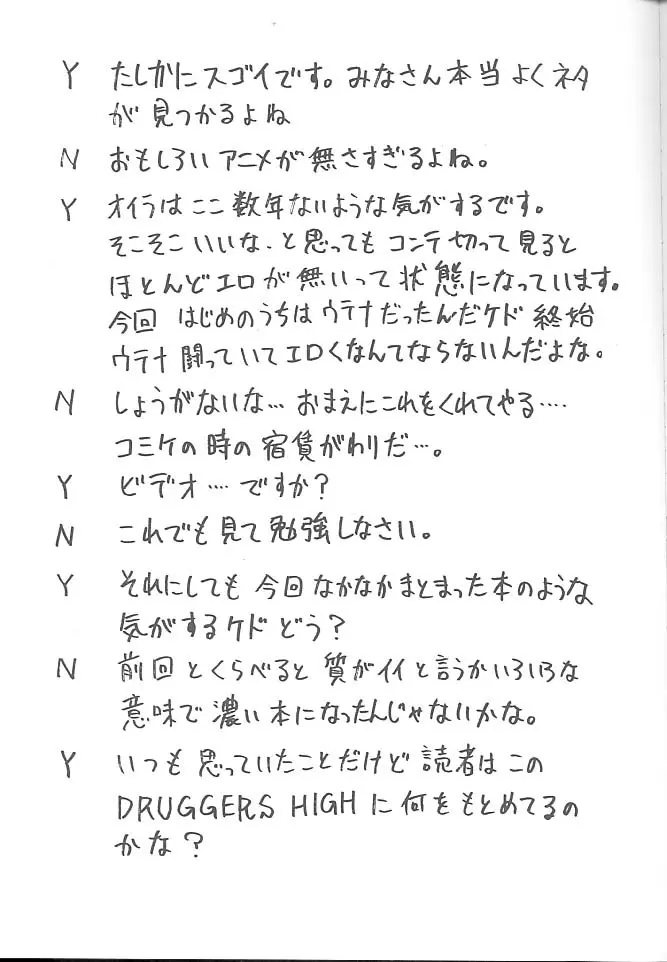 Y たしかにスゴイです。みなさん本当よくネタ
が見つかるよね
N おもしろいアニメが無さすぎるよね。
Y オイラはここ数年ないような気がするです。
そこそこいいな、と思ってもコンテ切って見ると
ほとんどエロが無いって状態になっています。
今回 はじめのうちはウテナだったんだケド 終始
ウテナ闘っていてエロくなんてならないんだよな。
N しょうがないな… おまえにこれをくれてやる‥‥
コミケの時の宿賃がわりだ…。
Y ビデオ…ですか?
N これでも見て勉強しなさい。
Y それにしても今回なかなかまとまった本のような
気がするケドどう?
N 前回とくらべると質がイイと言うかいろいろな
意味で濃い本になったんじゃないかな。
Y いつも思っていたことだけど読者はこの
DRUGGERS HIGHに何をもとめてるの
かな?